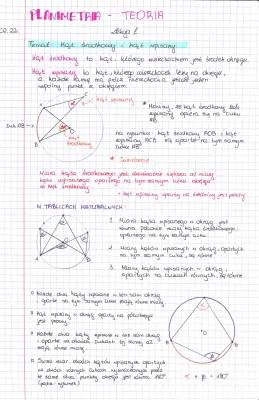 PLANIMETRIA - TEORIA
Lekcja 1.
Temat: Kąt środkowy i kąt wpisany.
Kąt środkowy to kąt, którego wierzchołkiem jest środek okręgu.
Kąt wpisany to kąt, którego wierzchołek leży na okręgu,
a każde ramię ma poza wierzchołkiem jeden
wspólny punkt z okręgiem.
kąt wpisany
* Mówimy, że kąt środkowy lub
wpisany opiera się na łuku
AB.
łuk AB
kąt
środkowy
na rysunku: kąt środkowy AOB i kąt
wpisany ACB są oparte na tym samym
łuku AB.
* Twierdzenie
Miara kąta środkowego jest dwukrotnie większa od miary
kąta wpisanego opartego na tym samym łuku okręgu
co kąt środkowy.
- kąt wpisany oparty na średnicy jest prosty
W TABLICACH MATURALNYCH:
1. Miara kąta wpisanego w okrąg jest
równa połowie miary kąta środkowego,
opartego na tym samym łuku.
2. Miary kątów wpisanych w okrąg, opartych
na tym samym łuku, są równe.
3. Miary kątów wpisanych w okrąg,
opartych na łukach równych, są równe.
Każde dwa kąty wpisane w ten sam okrąg
i oparte na tym samym łuku mają równe miary.
Kąt wpisany w okrąg oparty na półokręgu
jest prosty.
Każde dwa kąty wpisane w ten sam okrąg
i oparte na łukach tej samej
mają równe miary.
Suma miar dwóch kątów wpisanych opartych
na dwóch różnych łukach wyznaczonych przez
te same dwa punkty okręgu jest równa 180°
(patrz: rysunek)
α + β = 180°